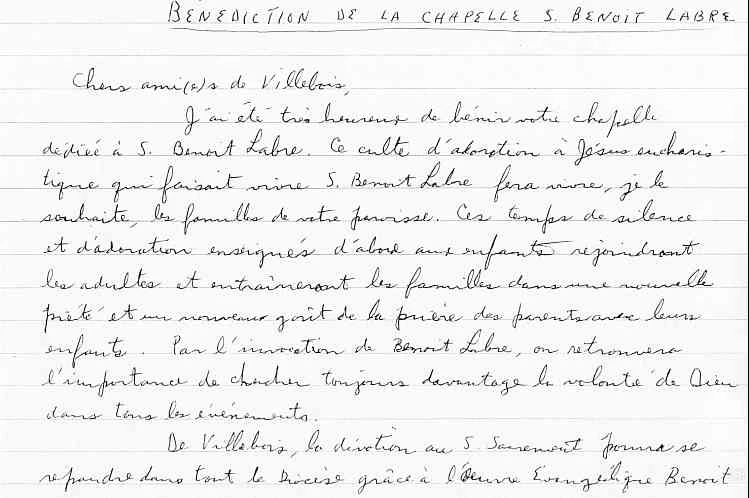 BENEDICTION DE LA CHAPELLE S. BENOIT LABRE
Chers ami(e)s de Villebois,
J'ai été très heureux de bénir votre chapelle
dédiée à S. Benoit Labre. Ce culte d'adoration à Jésus eucharis-
tique qui faisait vivre S. Benoit Labre fera vivre, je le
souhaite, les familles de votre paroisse. Ces temps de silence
et d'adoration enseignés d'abord aux enfants rejoindront
les adultes et entraîneront les familles dans une nouvelle
piété et un nouveau goût de la prière des parents avec leurs
enfants. Par l'invocation de Benoit Labre, on retrouvera
l'importance de chercher toujours davantage la volonté de Dieu
dans tous les événements.
De Villebois, la dévotion au S. Sacrement pourra se
répandre dans tout le Diocèse grâce à l'Oeuvre Evangélique Benoit